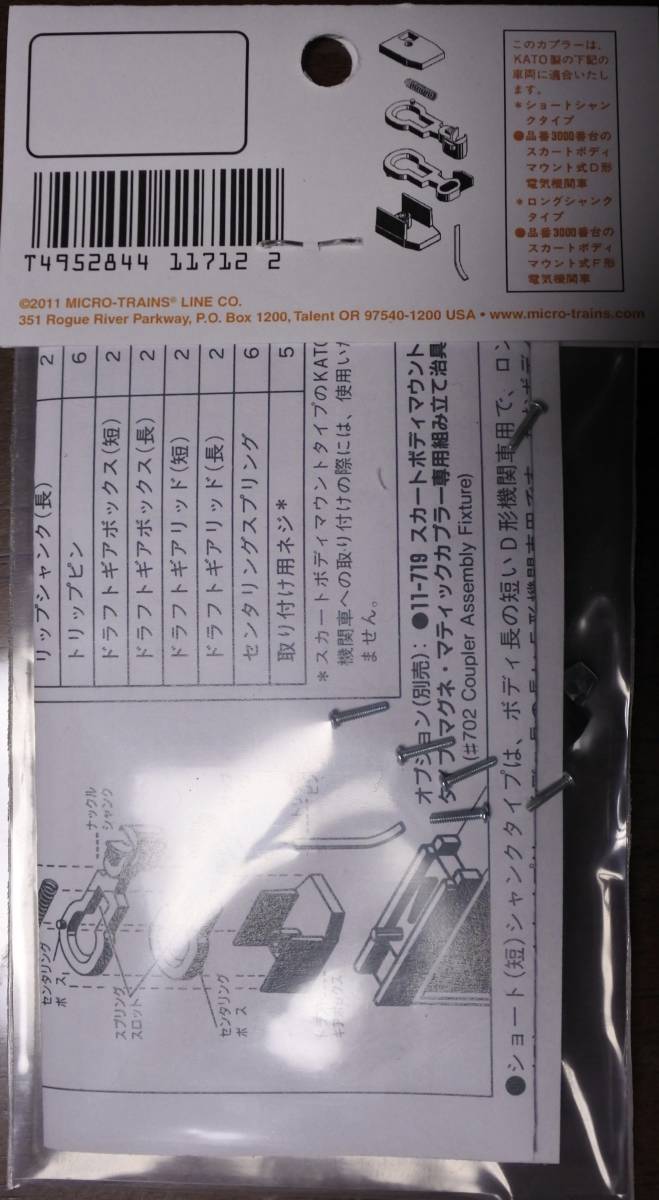 このカプラーは、
KATO製の下記の
車両に適合いたし
ます。
*ショートシャン
クタイプ
●品番3000番台の
スカートボディ
マウント式D形
電気機関車
*ロングシャンク
タイプ
●品番3000番台の
スカートボディ
マウント式F形
電気機関車
T4952844 11712 2
©2011 MICRO-TRAINS® LINE CO.
351 Rogue River Parkway, P.O. Box 1200, Talent OR 97540-1200 USA • www.micro-trains.com
リップシャンク(長) 2
トリップピン 6
ドラフトギアボックス(短) 2
ドラフトギアボックス(長) 2
ドラフトギアリッド(短) 2
ドラフトギアリッド(長) 2
センタリングスプリング 6
取り付け用ネジ* 5
*スカートボディマウントタイプのKATO
機関車への取り付けの際には、使用いた
ません。
オプション(別売):●11-719 スカートボディマウント
タイプマグネ・マティックカプラー専用組み立て治具
(#702 Coupler Assembly Fixture)
ナックル
シャンク
センタリング
ボス
スプリング
スロット
センタリング
ボス
●ショート(短)シャンクタイプは、ボディ長の短いD形機関車用で、ロン